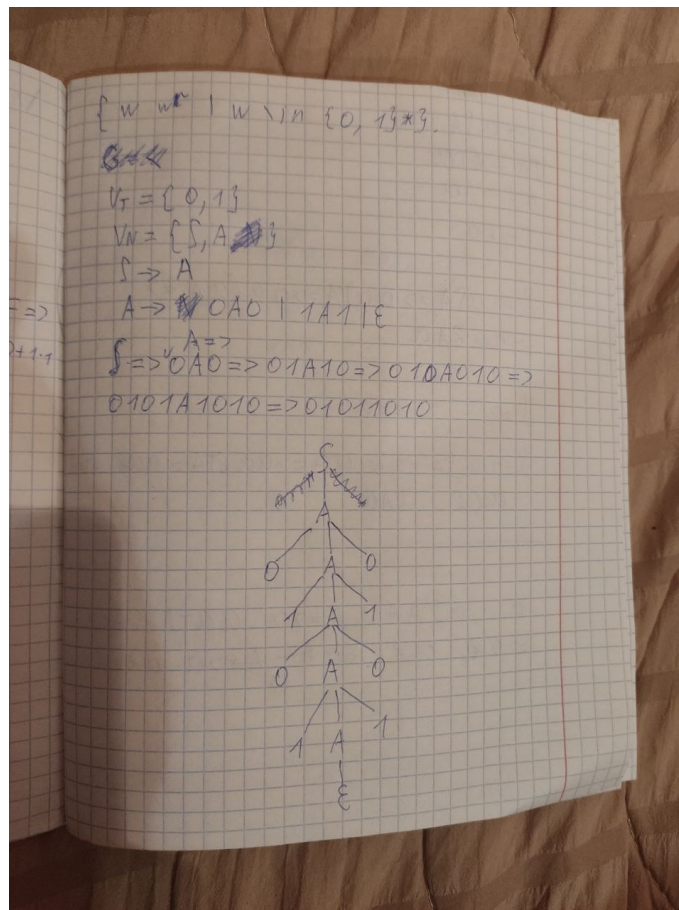 { w wʳ | w \in {0, 1}*}.
V_T = { 0, 1 }
V_N = { S, A }
S -> A
A -> 0A0 | 1A1 | ε
A =>
S => 0A0 => 01A10 => 010A010 =>
0101A1010 => 01011010
=>
+1·1
S
A
0 A 0
1 A 1
0 A 0
1 A 1
ε